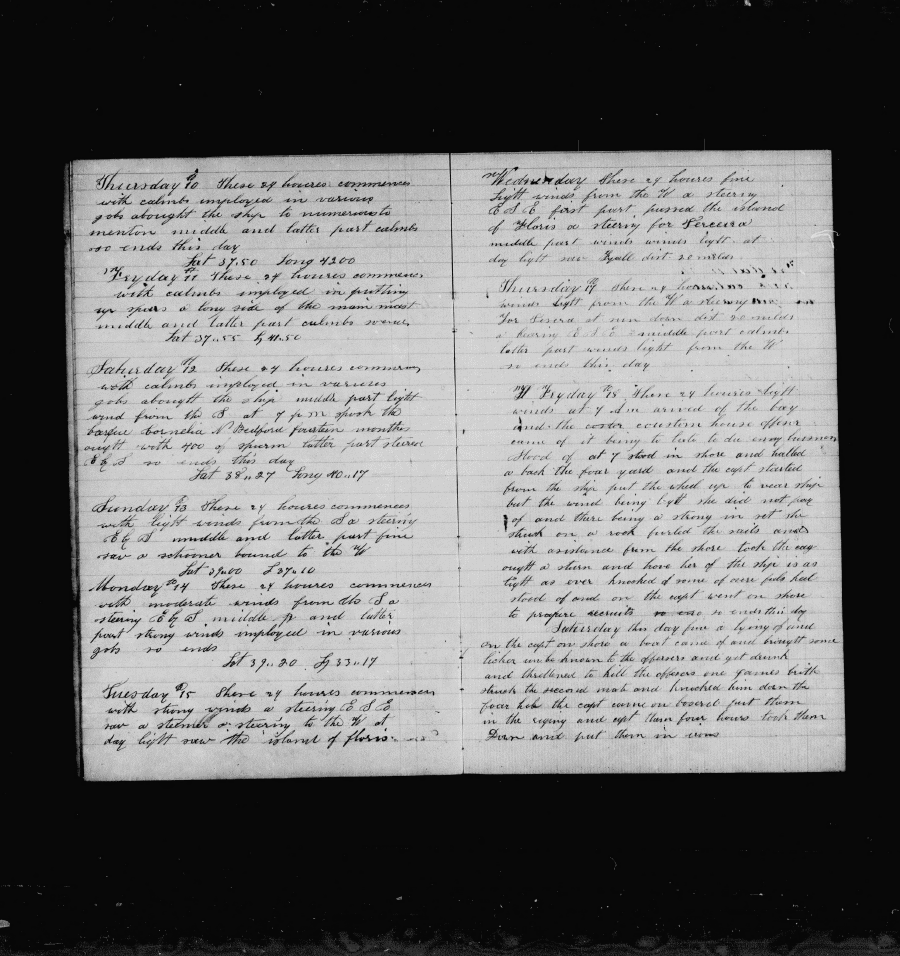 Thursday th 10 These 24 houres commences
with calmbs imployed in various
gobs abought the ship to numerous to
mention middle and latter part calmbs
so ends this day
Lat 37.50 Long 42.00
Fryday th 11 These 24 houres commences
with calmbs imployed in putting
up spars a long side of the main mast
middle and latter part calmbs so ends
Lat 37.55 Lg 41.50
Saturday th 12 These 24 houres commences
with calmbs imployed in various
gobs abought the ship middle part light
wind from the S at 7 p m spock the
barque Cornelia N Bedford fourteen months
ought with 400 of spurm latter part steered
E & S so ends this day
Lat 38..27 Long 40..17
Sunday th 13 These 24 houres commences
with light winds from the S a steering
E & S middle and latter part fine
saw a schooner bound to the W
Lat 39..00 L 37..10
Monday th 14 These 24 houres commences
with moderate winds from the S a
steering E & S middle p and latter
part strong winds imployed in various
gobs so ends
Lat 39..20 Lg 33..17
Tuesday th 15 These 24 houres commences
with strong winds a steering E S E
saw a steemer a steering to the W at
day light saw the island of floris
Wednesday these 24 houres fine
light winds from the W a steering
E S E first part passed the island
of Floris a steering for Terceira
middle part winds winds light at
day light saw Fyall dist 20 miles
Thursday th 17 these 24
winds light from the W a steering
for at sun down dist 20 milds
a baring E S E middle part calmbs
latter part winds light from the W
so ends this day
Fryday th 18 These 24 houres light
winds at 7 A m arived of the bay
and the coustem house offser
came of it being to late to du enny bussness
stood of at 7 stood in shore and halled
a back the four yard and the capt started
from the ship put the wheel up to wear ship
but the wind being light she did not pay
of and there being a strong in set she
struck on a rock furled the sails and
with asistance from the shore took the cag
ought a stern and hove her of the ship is as
tight as ever knocked of some of ower fals keel
stood of and on the capt went on shore
to prepare recruits so ends this day
Saturday this day fine a lying of and
on the capt on shore a boat came of and brought some
licker unbeknown to the offesers and got drunk
and thretened to kill the offesors one games
struck the second mate and knocked him down the
four the capt come on boared put them
in the riging and cept them four hours took them
Down and put them in irons